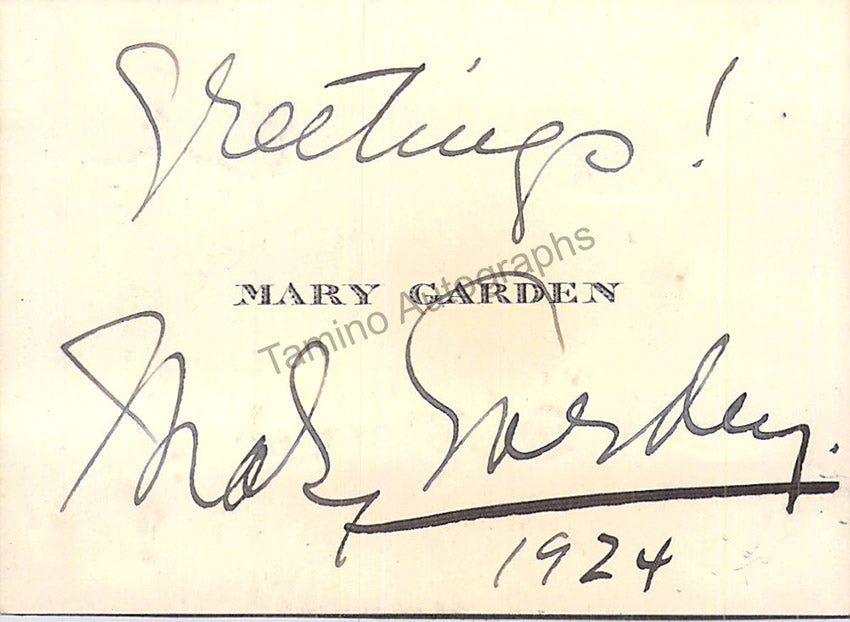 Greetings!
MARY GARDEN
Tamino Autographs
Mary Garden.
1924